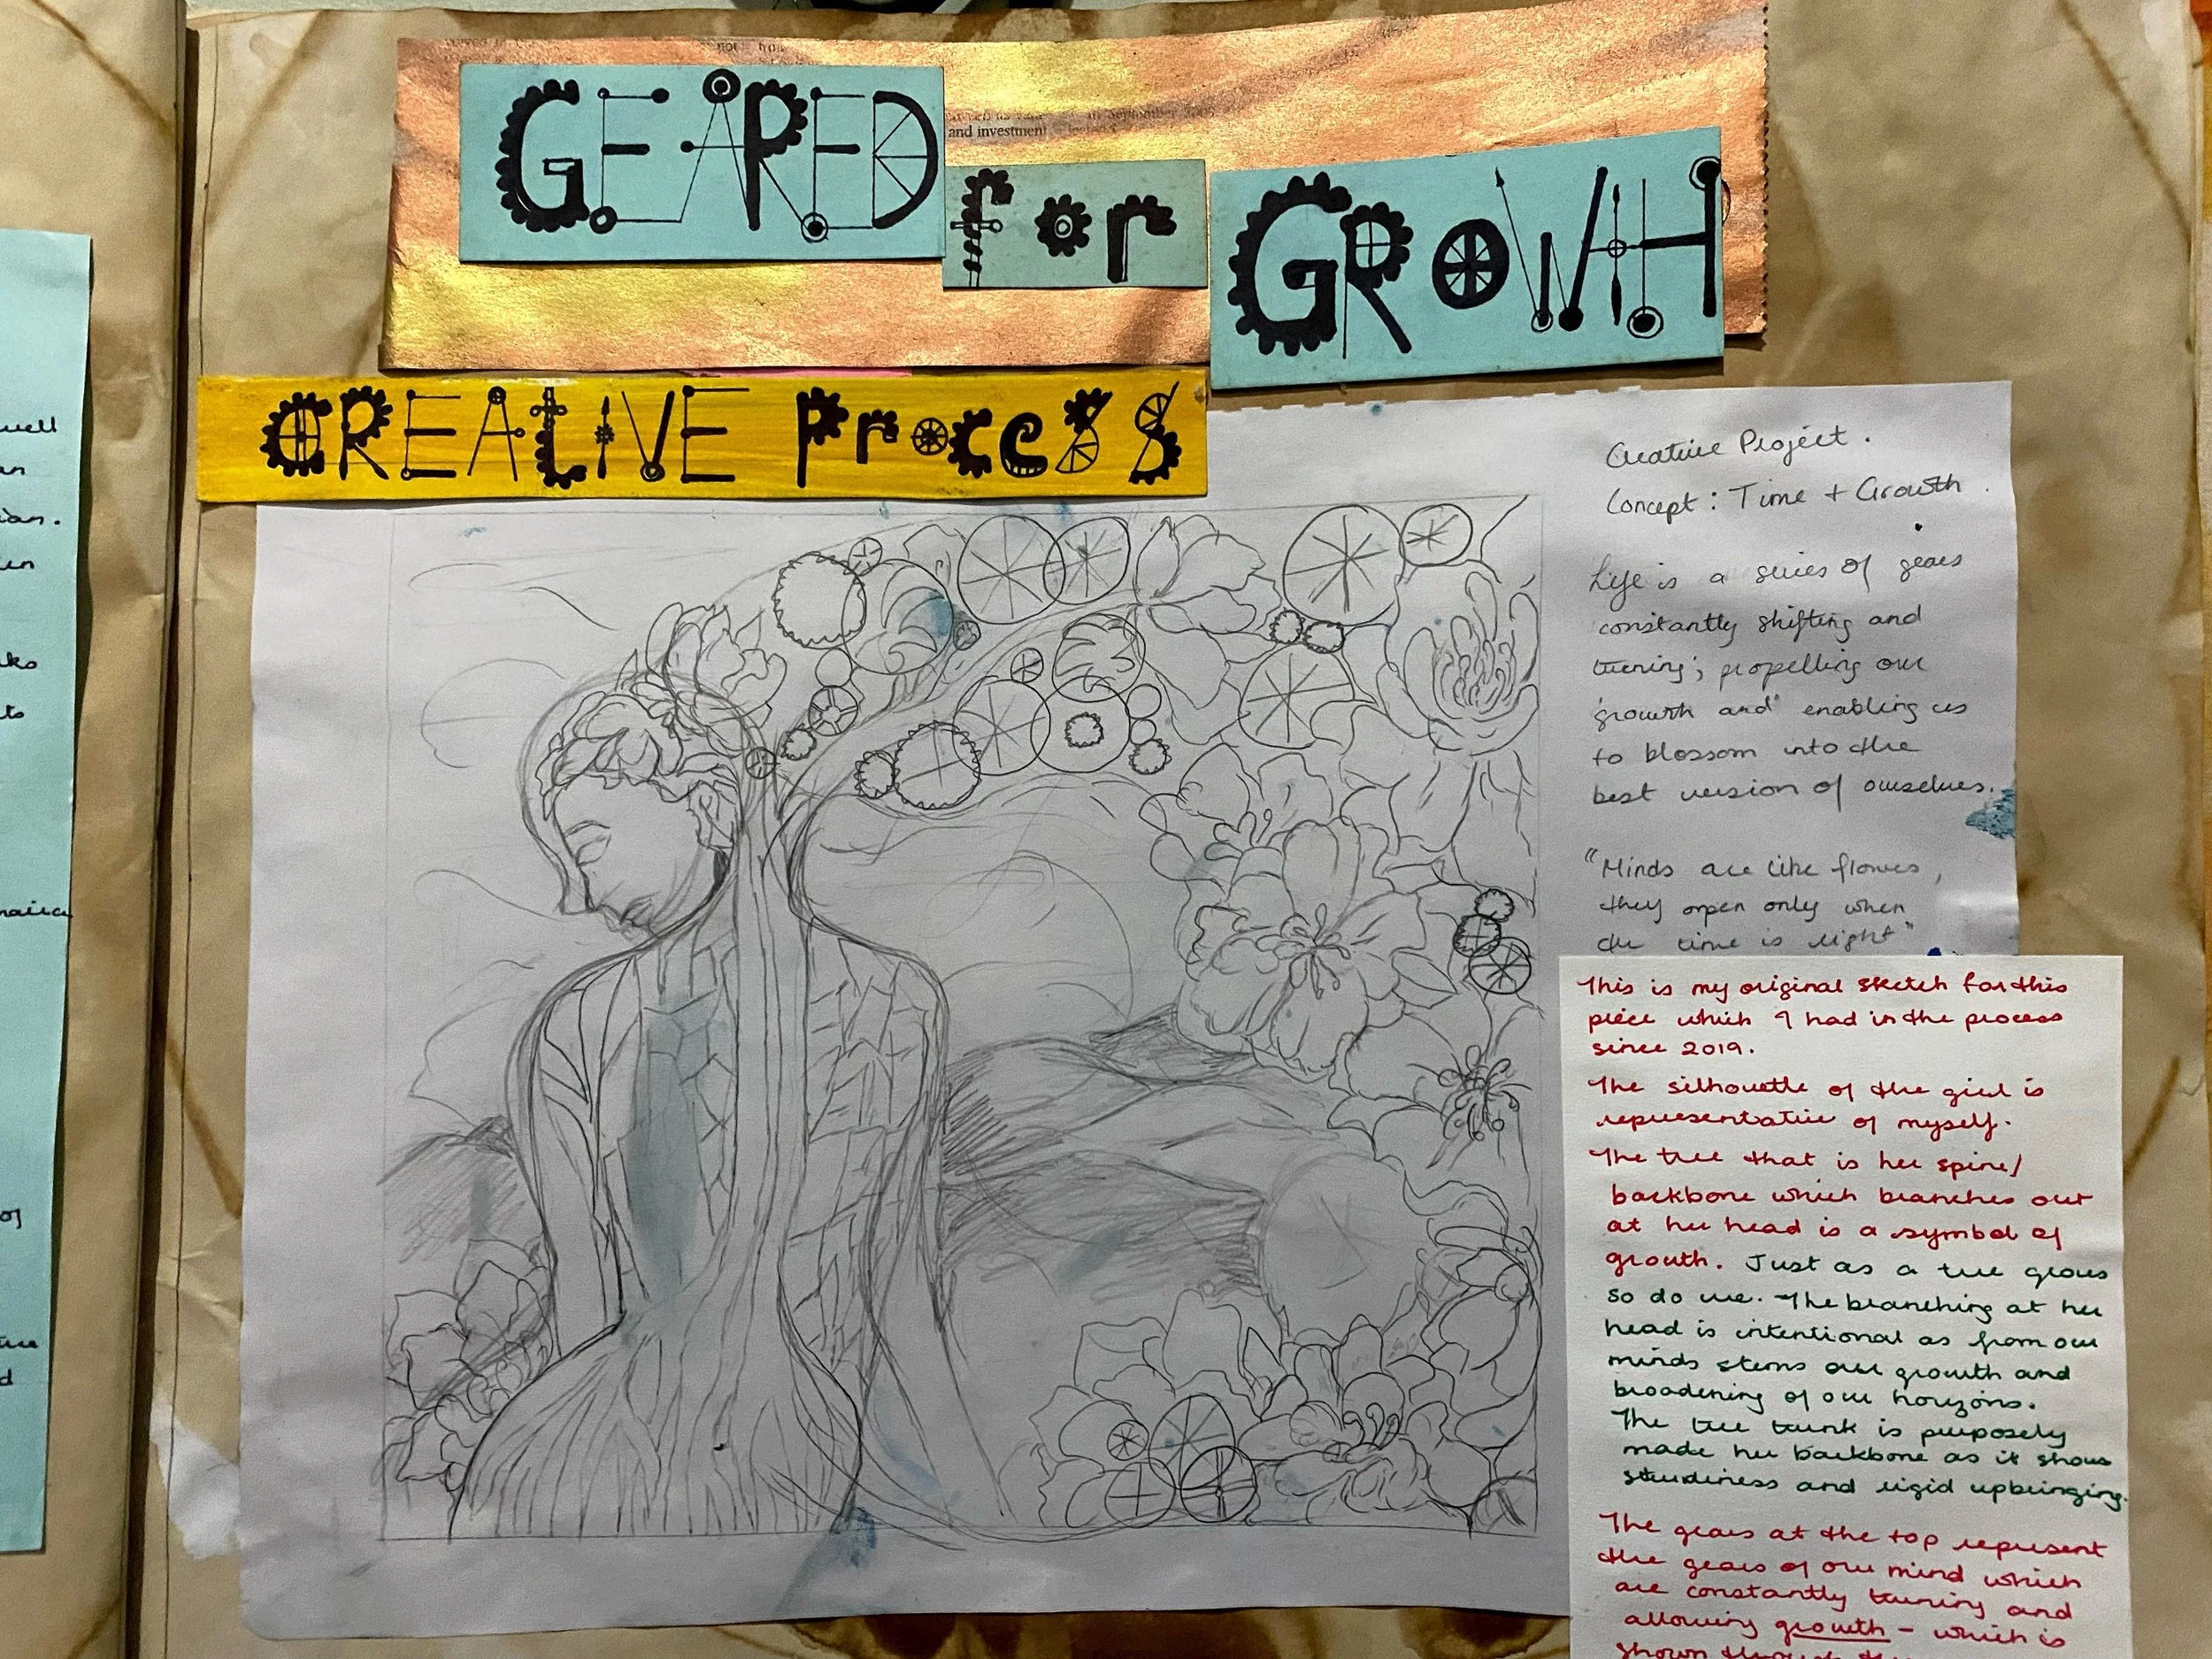 GEARED for GROWTH
and investment
CREATIVE Process
Creative Project.
Concept: Time + Growth.
Life is a series of gears
constantly shifting and
turning; propelling our
growth and enabling us
to blossom into the
best version of ourselves.
"Minds are like flowers,
they open only when
the time is right"
This is my original sketch for this
piece which I had in the process
since 2019.
The silhouette of the girl is
representative of myself.
The tree that is her spine/
backbone which branches out
at her head is a symbol of
growth. Just as a tree grows
so do we. The branching at her
head is intentional as from our
minds stems our growth and
broadening of our horizons.
The tree trunk is purposely
made her backbone as it shows
sturdiness and rigid upbringing.
The gears at the top represent
the gears of our mind which
are constantly turning and
allowing growth - which is
shown through the
well
an
ian.
en
ks
to
maica
of
d